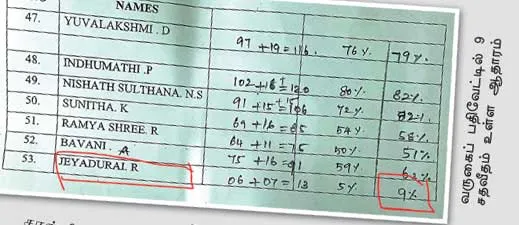 NAMES
47. YUVALAKSHMI . D
97 + 19 = 116 76% 79%
48. INDHUMATHI .P
49. NISHATH SULTHANA. N.S 80% 82%
50. SUNITHA. K 91 + 15 = 106 72%
51. RAMYA SHREE. R 54% 58%
52. BAVANI . A 64 + 11 = 75 50% 51%
53. JEYADURAI. R 75 + 16 = 91 59% 62%
06 + 07 = 13 5% 9%
வருகைப் பதிவேட்டில் 9
சதவீதம் உள்ள ஆதாரம்